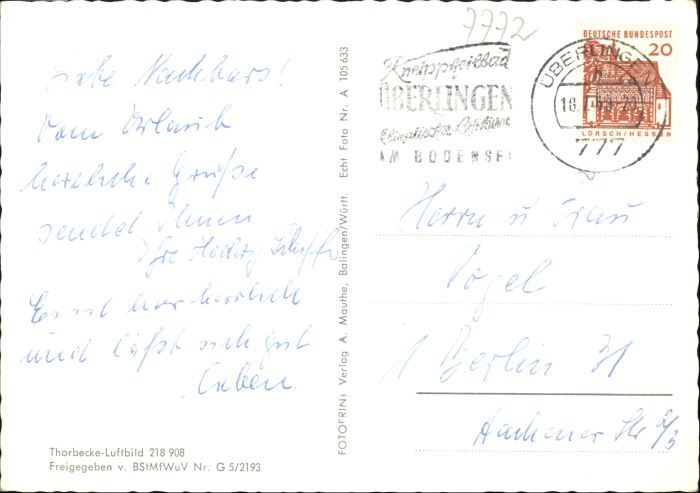 7772
Liebe Nachbars!
Vom Urlaub
herzliche Grüße
sendet Ihnen
Ihre Hedwig
Es ist hier herrlich
und läßt sich gut
leben.
Thorbecke-Luftbild 218 908
Freigegeben v. BStMfWuV Nr. G 5/2193
FOTOFRINI Verlag A. Mauthe, Balingen/Württ. Echt Foto Nr. A 105 633
Kneippheilbad
ÜBERLINGEN
klimatischer Luftkurort
AM BODENSEE
ÜBERLINGEN
777
DEUTSCHE BUNDESPOST
20
LORSCH/HESSEN
Herrn u Frau
Vogel
1 Berlin 31
Aachener Str